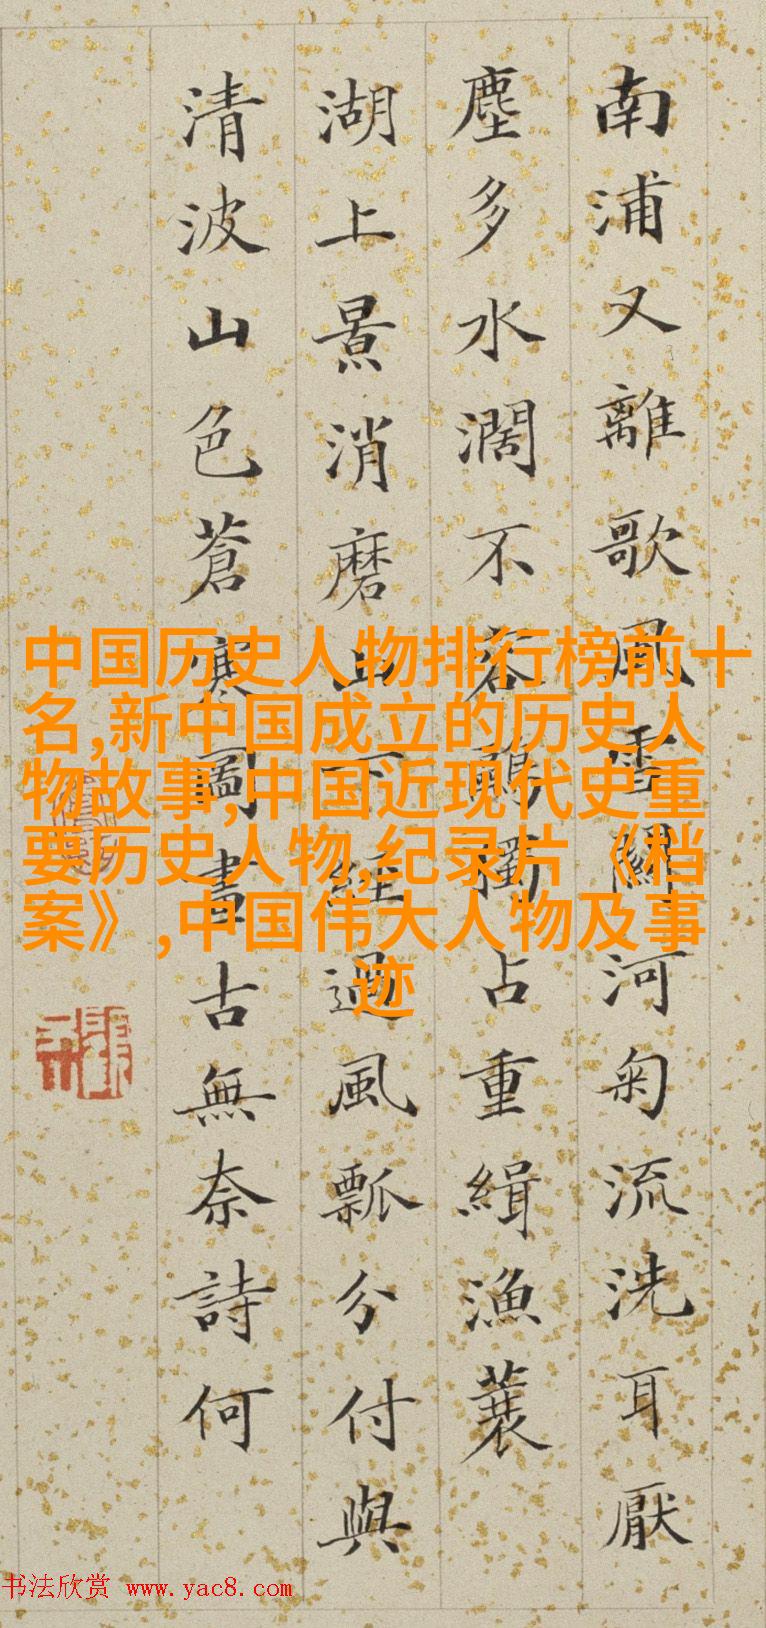 南浦又離歌風雪關河匊流洗耳厭
塵多水濶不容鷗獨占重緝漁蓑
湖上景消磨上下經過風瓢分付與
清波山色蒼寒圖畫古無奈詩何
中国历史人物排行榜前十
名,新中国成立的历史人
物故事,中国近现代史重
要历史人物,纪录片《档
案》,中国伟大人物及事
迹
书法欣赏 www.yac8.com